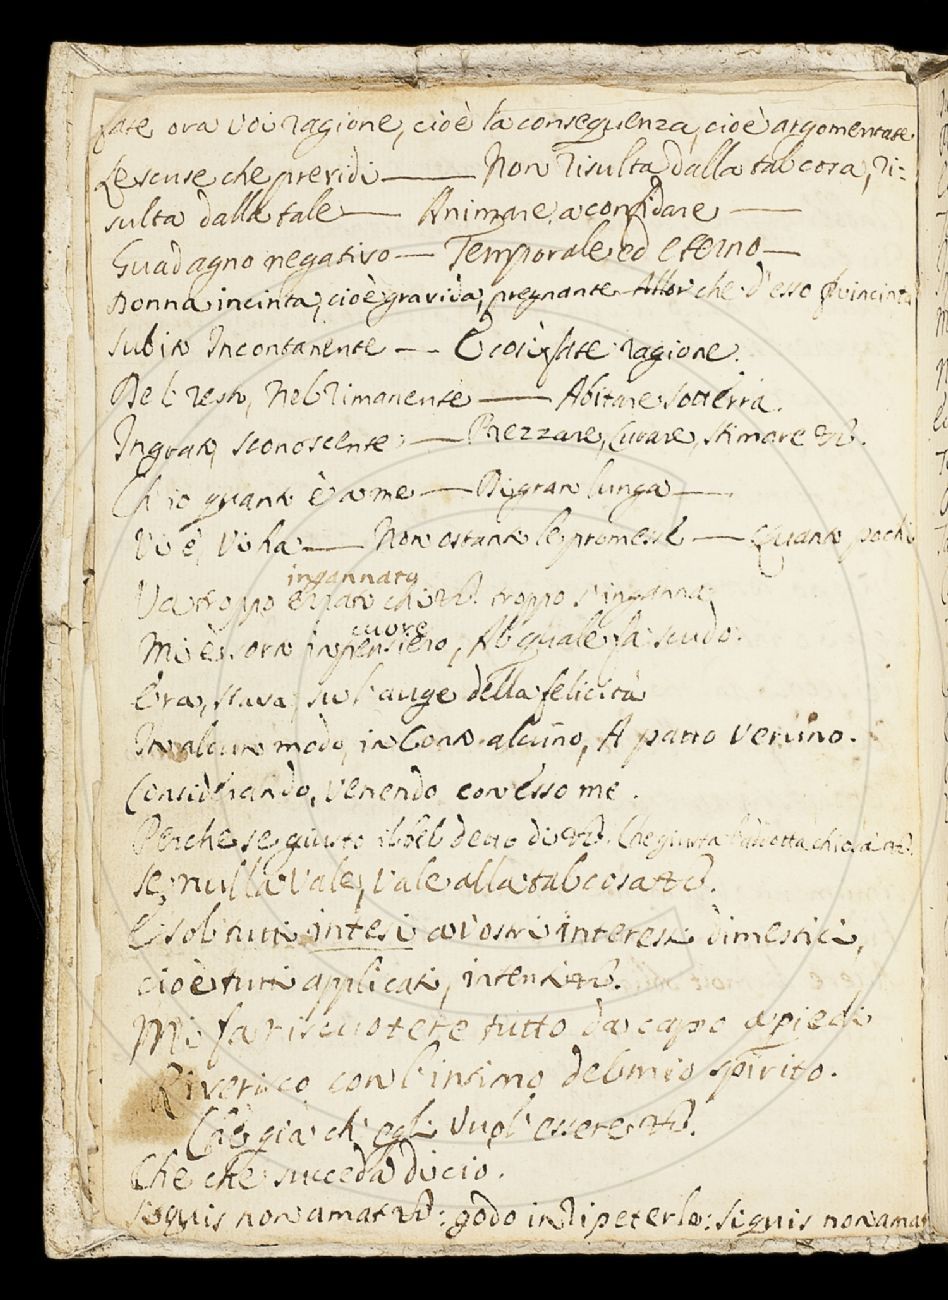 fate ora voi ragione, cioè la conseguenza, cioè argomentate
Le scuse che previdi —— Non risulta dalla tal cosa, ri-
sulta dalla tale — Animare, a confidare —
Guadagno negativo — Temporale ed eterno —
Donna incinta, cioè gravida, pregnante Allor che d'esso fu incinta
Subito Incontanente — Ecosì fate ragione.
Del resto, Nel rimanente —— Abitare sotterra.
Ingrato, sconoscente — Prezzare, Curare, stimare &c.
Ch'io quanto è a me — Di gran lunga —
Vi è, Vi ha —— Non ostante le promesse — Quanto pochi
ingannato
Va troppo errato chi &c. troppo s'inganna
cuore
Mi è ora in pensiero, Al quale fa scudo.
Era, stava, su l'auge della felicità
In alcun modo, in conto alcuno, A patto veruno.
Considerando, venendo con esso me.
Perche se giusto il bel detto di &c. Che giusta
se, nulla vale, vale alla tal cosa &c.
E sol tutti intesi a vostri interessi dimestici,
cioè tutti applicati, intenti &c.
Mi fa riscuotere tutto da capo a piedi
Riverisco con l'intimo del mio spirito.
Che già ch'egli vuol essere &c.
Che che succeda di cio.
Siquis non amat &c: godo in ripeterlo: Siquis non amat